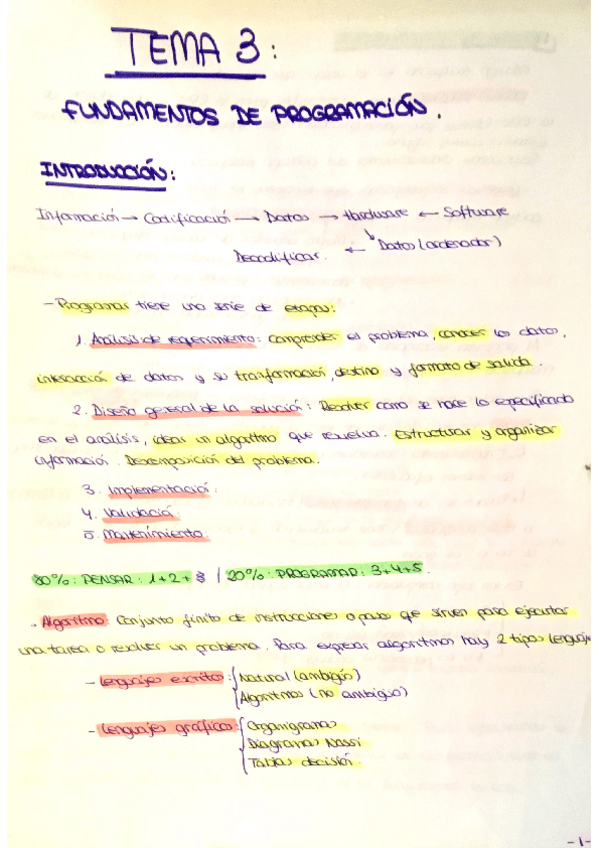 TEMA 3:
FUNDAMENTOS DE PROGRAMACIÓN.
INTRODUCCIÓN:
Información → Codificación → Datos → Hardware ← Software
Decodificar. ← Datos (ordenador)
- Programar tiene una serie de etapas:
1. Análisis de requerimiento: Comprender el problema, conocer los datos,
interacción de datos y su tranformación, destino y formato de salida.
2. Diseño general de la solución: Resolver como se hace lo especificado
en el análisis, idear un algoritmo que resuelva. Estructurar y organizar
información. Descomposición del problema.
3. Implementación.
4. Validación.
5. Mantenimiento.
80%: PENSAR: 1+2+3 | 20%: PROGRAMAR: 3+4+5.
- Algoritmo: Conjunto finito de instrucciones o pasos que sirven para ejecutar
una tarea o resolver un problema. Para expresar algoritmos hay 2 tipos lenguaje
- Lenguajes escritos: Natural (ambiguo)
Algoritmos (no ambiguo)
- Lenguajes gráficos: Organigramas
Diagramas Nassi
Tablas decisión.
-1-